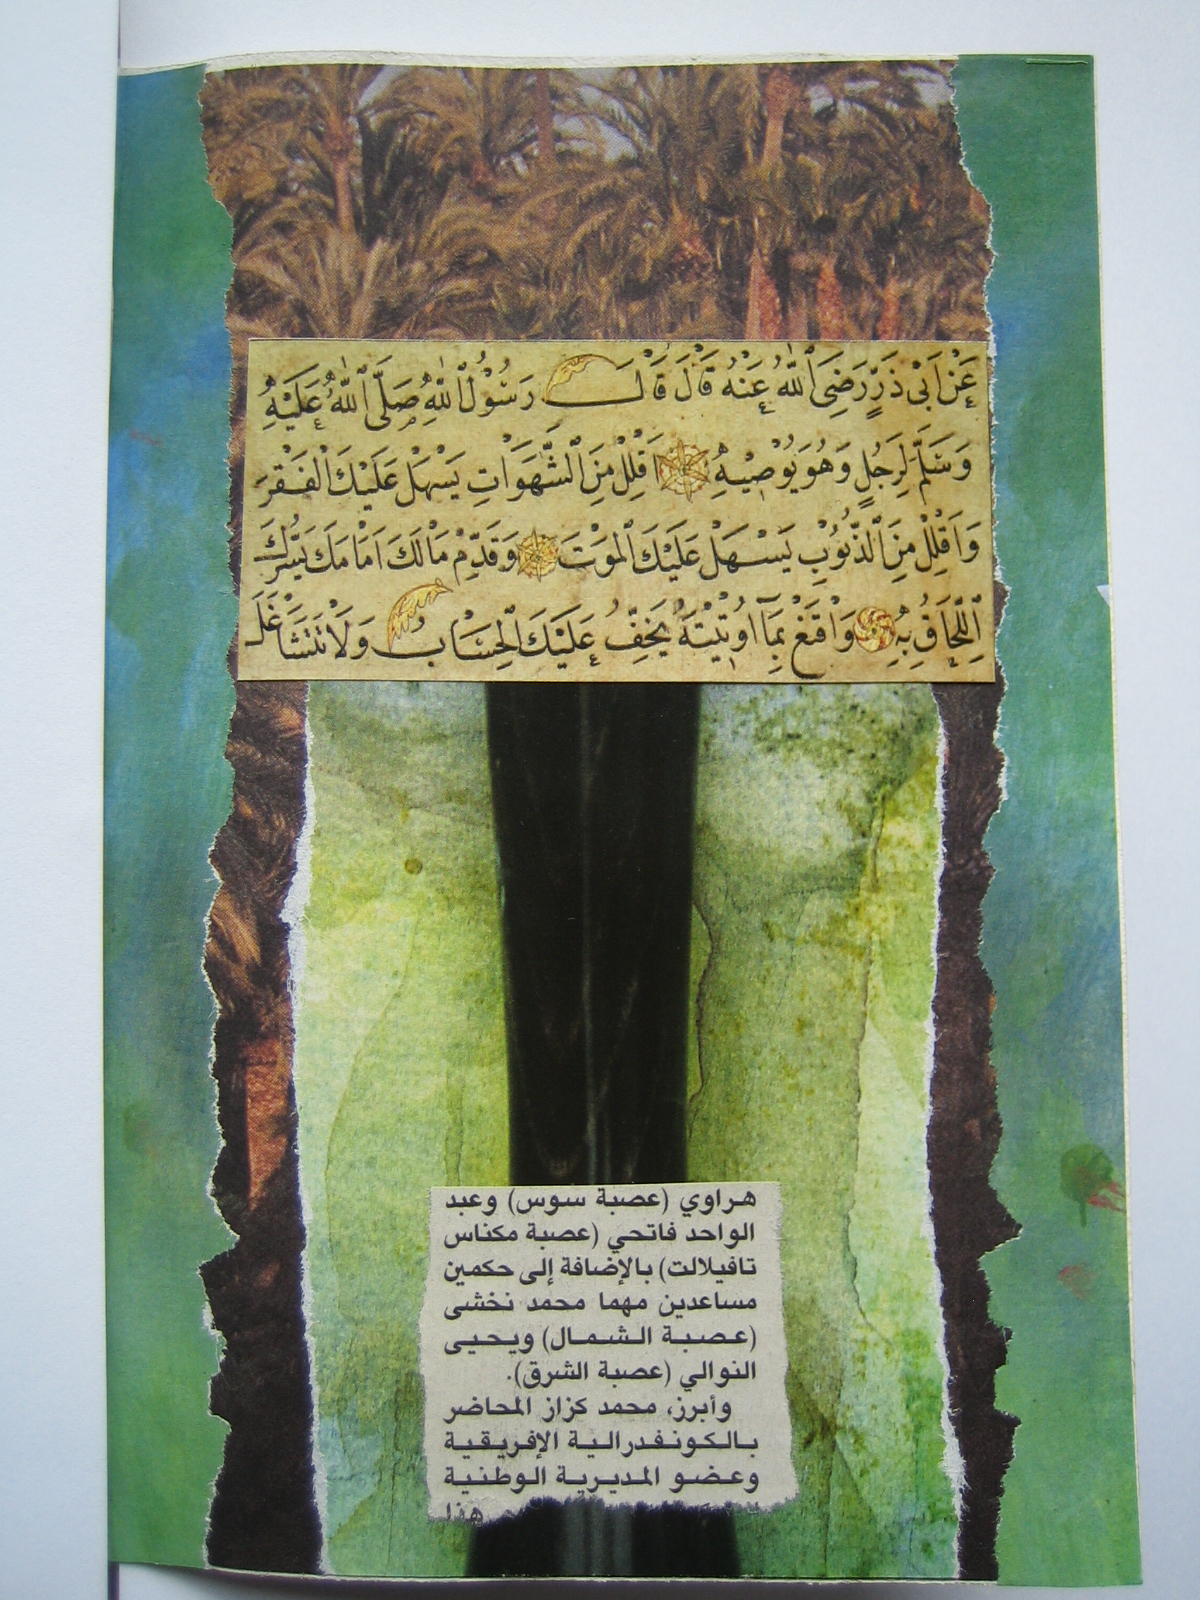 عَنْ اَبِىْ ذَرٍّ رَضِىَ اللّٰهُ عَنْهُ قَالَ قَالَ رَسُوْلُ اللّٰهِ صَلَّى اللّٰهُ عَلَيْهِ
وَسَلَّمَ لِرَجُلٍ وَهُوَ يُوْصِيْهِ اَقْلِلْ مِنَ الشَّهَوَاتِ يَسْهَلْ عَلَيْكَ الْفَقْرَ
وَاَقْلِلْ مِنَ الذُّنُوْبِ يَسْهَلْ عَلَيْكَ الْمَوْتَ وَقَدِّمْ مَالَكَ اَمَامَكَ يَسُرُّكَ
اللَّحَاقُ بِهِ وَاقْنَعْ بِمَا اُوْتِيْتَهُ يَخِفُّ عَلَيْكَ الْحِسَابُ وَلَا تَتَشَاغَلْ
هراوي (عصبة سوس) وعبد
الواحد فاتحي (عصبة مكناس
تافيلالت) بالإضافة إلى حكمين
مساعدين مهما محمد نخشى
(عصبة الشمال) ويحيى
النوالي (عصبة الشرق).
وأبرز، محمد كزاز المحاضر
بالكونفدرالية الإفريقية
وعضو المديرية الوطنية
هذا